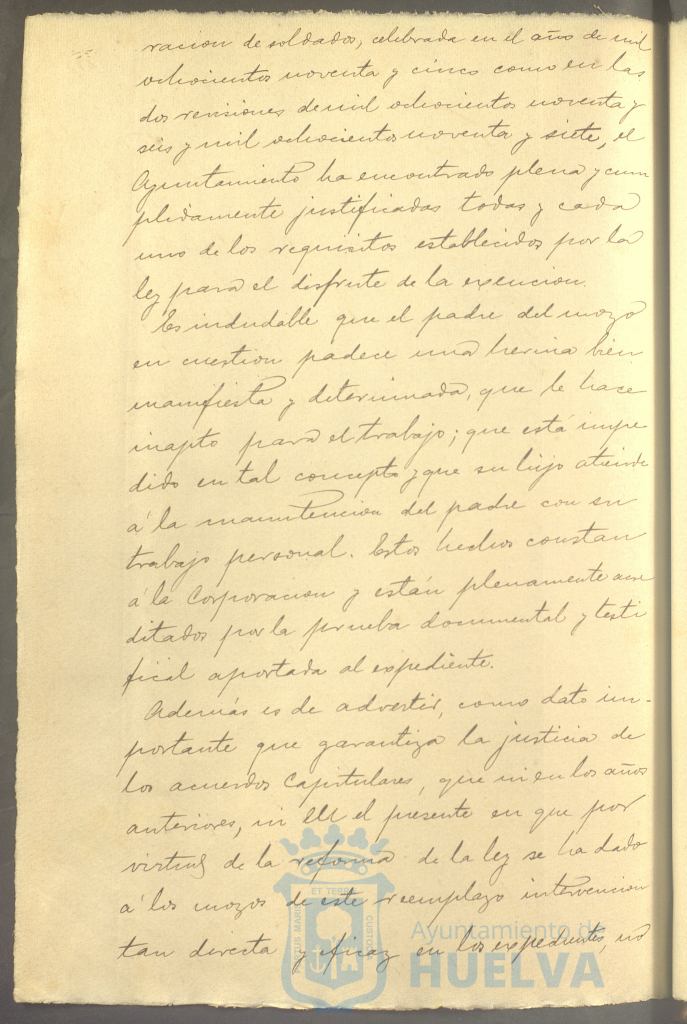 racion de soldados, celebrada en el año de mil
ochocientos noventa y cinco como en las
dos revisiones de mil ochocientos noventa y
seis y mil ochocientos noventa y siete, el
Ayuntamiento ha encontrado plena y cum
plidamente justificadas todas y cada
uno de los requisitos establecidos por la
ley para el disfrute de la exencion.
Es indudable que el padre del mozo
en cuestion padece una hernia bien
manifiesta y determinada, que le hace
inapto para el trabajo; que está impe
dido en tal concepto y que su hijo atiende
á la manutencion del padre con su
trabajo personal. Estos hechos constan
á la Corporacion y están plenamente acre
ditados por la prueba documental y testi
fical aportada al expediente.
Además es de advertir, como dato im-
portante que garantiza la justicia de
los acuerdos Capitulares, que ni en los años
anteriores, ni en el presente en que por
virtud de la reforma de la ley se ha dado
á los mozos de este reemplazo intervencion
tan directa y eficaz en los expedientes, no
ET TERRAE
PORTUS MARIS
CUSTODIA
Ayuntamiento de
HUELVA